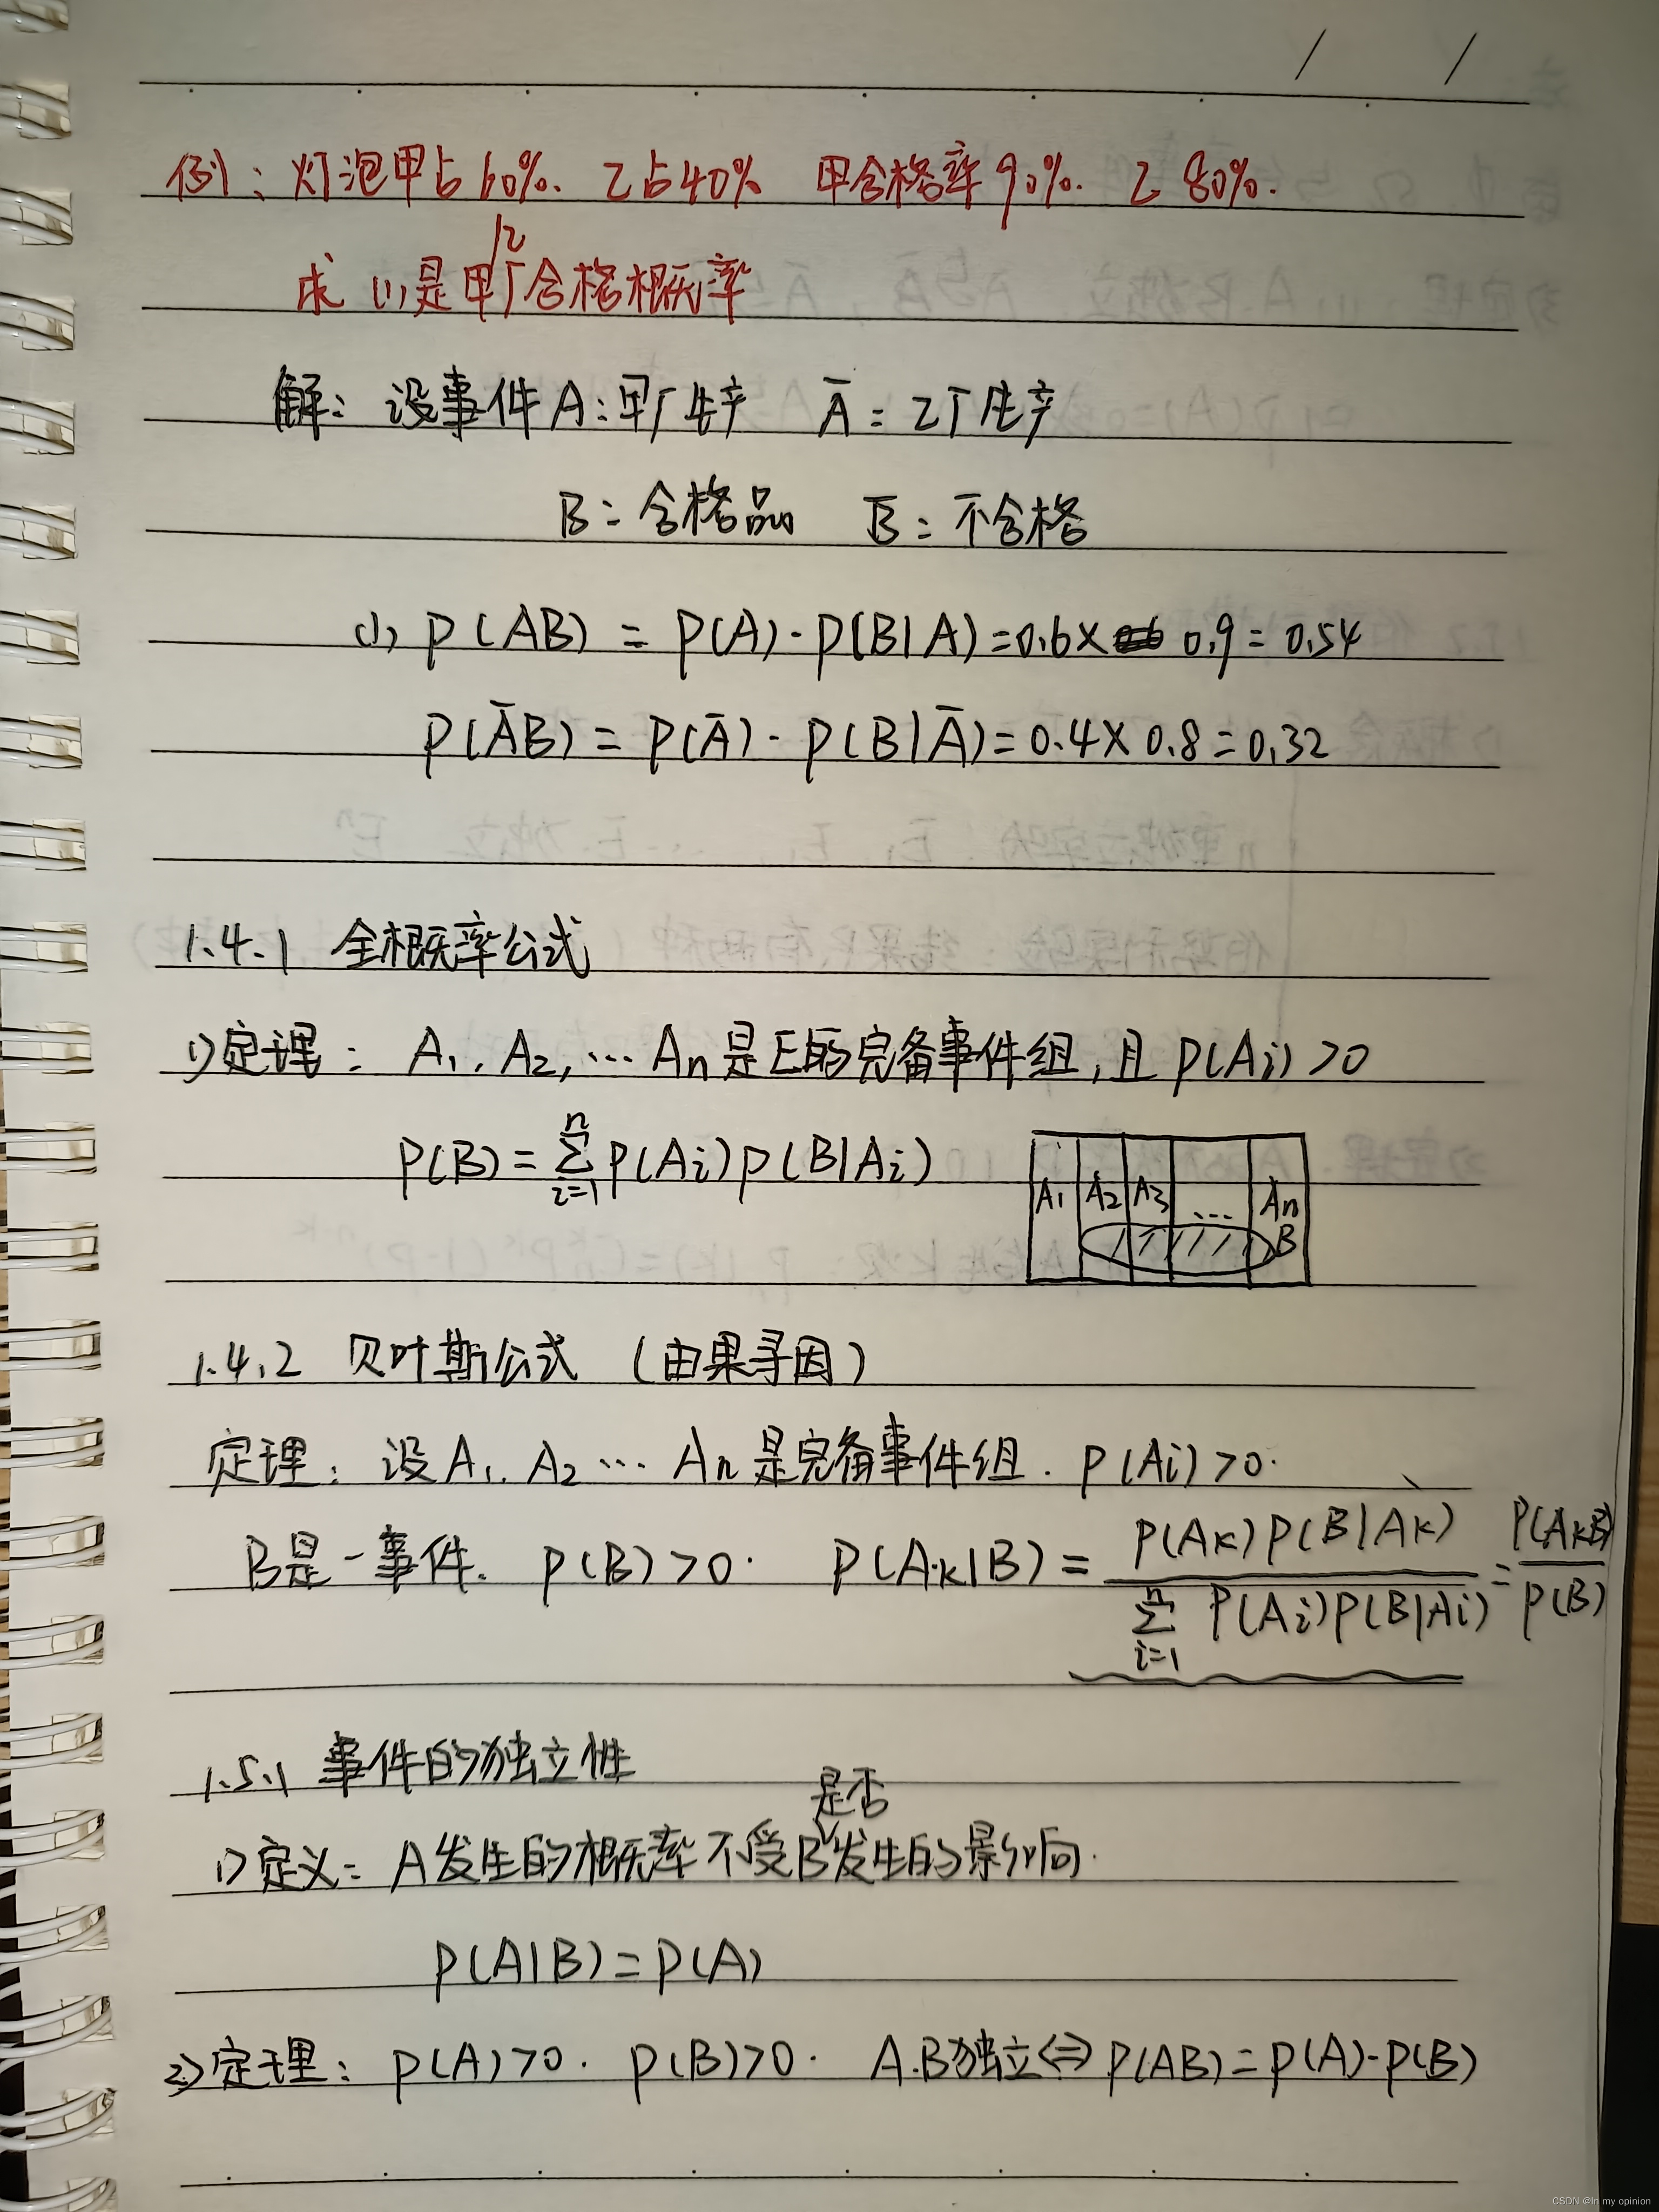 / /
例：灯泡甲占60%. 乙占40% 甲合格率90%. 乙80%.
/乙
求 (1)是甲厂合格概率
解：设事件A：甲厂生产 Ā：乙厂生产
B：合格品 B̄：不合格
(1) P(AB) = P(A)·P(B|A)=0.6× 0.9=0.54
P(ĀB) = P(Ā)·P(B|Ā)=0.4×0.8=0.32
1.4.1 全概率公式
1)定理：A₁,A₂,…An是E的完备事件组,且P(Ai)>0
P(B)=∑ⁿᵢ₌₁P(Ai)P(B|Ai)
A₁ A₂ A₃ … An
B
1.4.2 贝叶斯公式 (由果寻因)
定理：设A₁,A₂…An是完备事件组. P(Ai)>0.
B是一事件. P(B)>0. P(Ak|B)=P(Ak)P(B|Ak)/∑ⁿᵢ₌₁P(Ai)P(B|Ai)=P(AkB)/P(B)
1.5.1 事件的独立性
是否
1)定义：A发生的概率不受B发生的影响.
P(A|B)=P(A)
2)定理：P(A)>0. P(B)>0. A.B独立⇔P(AB)=P(A)·P(B)
CSDN @In my opinion